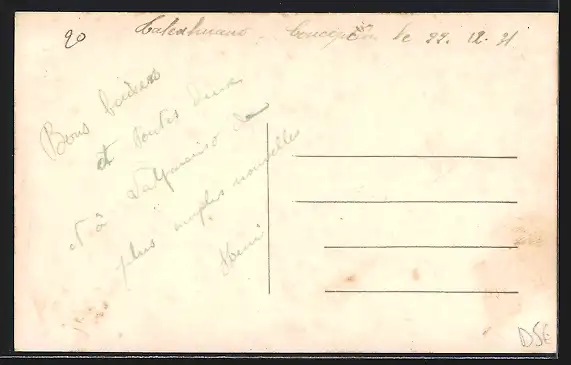 20 Talcahuano. Concepción le 22. 12. 31
Bons baisers
et toutes deux
et à Valparaiso de
plus amples nouvelles
D5E